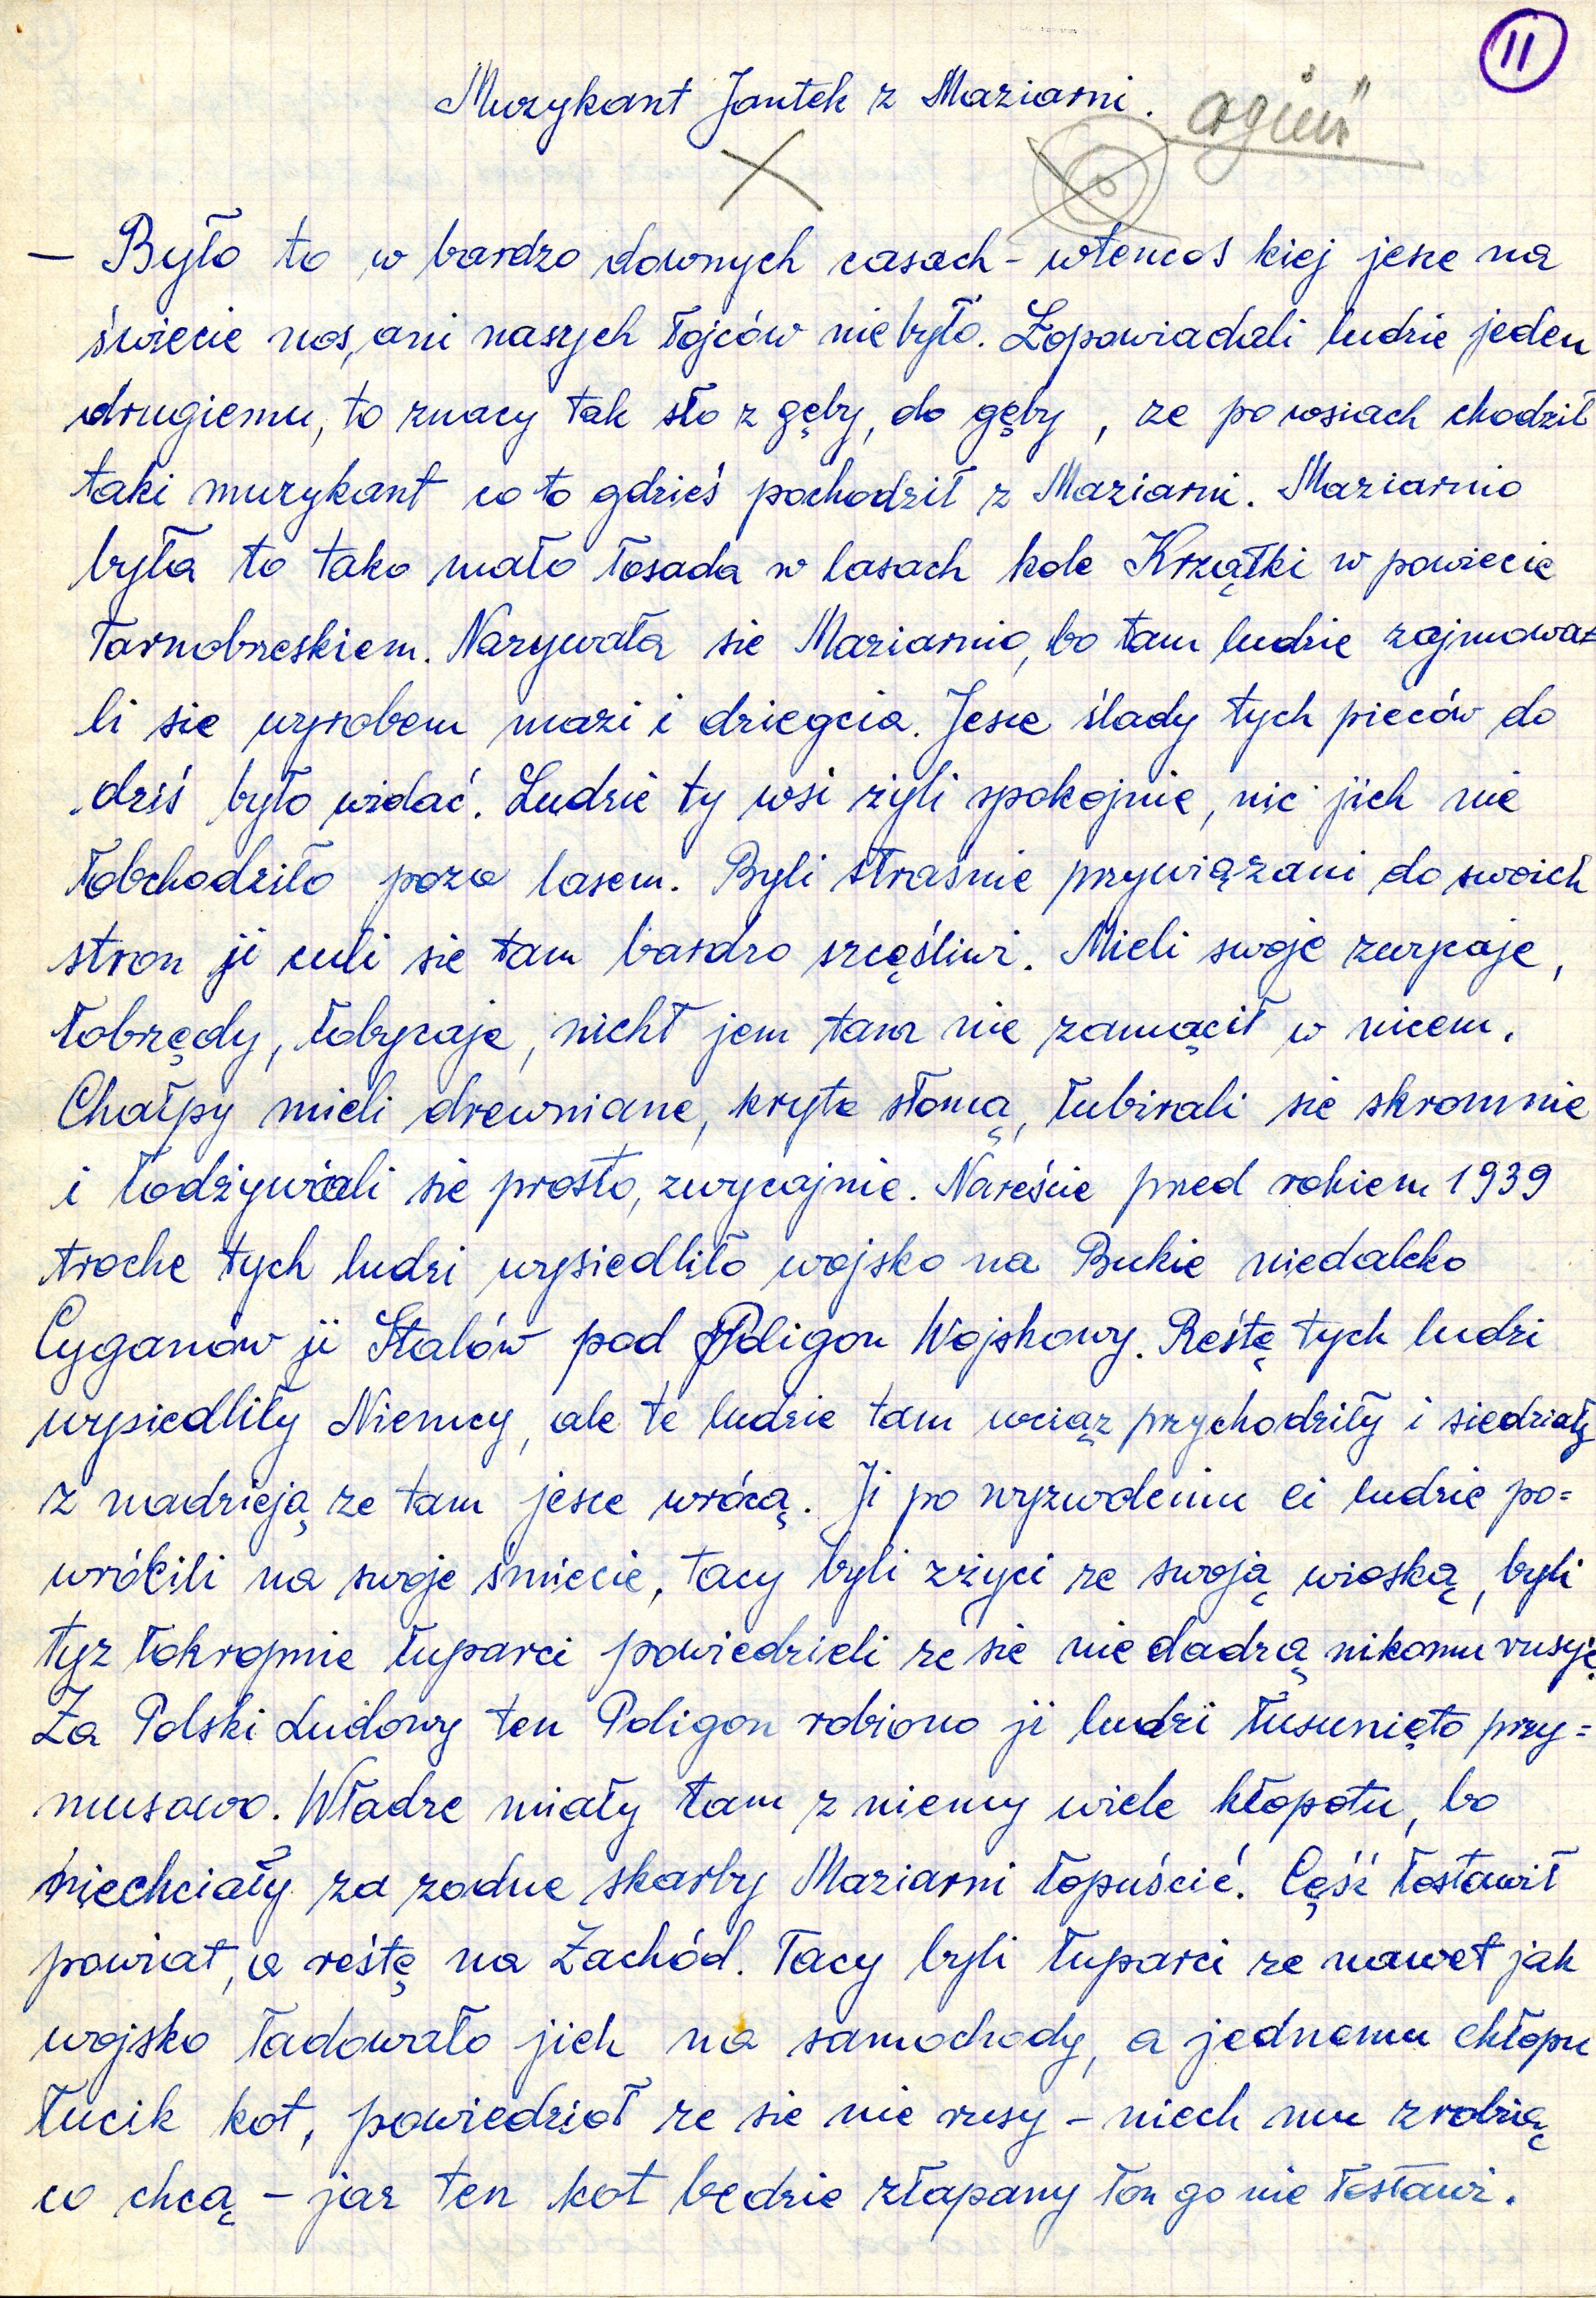 11
Muzykant Jantek z Maziarni.
"ogień"
— Było to w bardzo downych casach - wtencos kiej jesce na
świecie nos, ani nasych łojców nie było. Łopowiadali ludzie jeden
drugiemu, to znacy tak sło z gęby, do gęby, ze po wsiach chodził
taki muzykant co to gdzieś pochodził z Maziarni. Maziarnio
była to tako mało łosada w lasach kole Krzątki w powiecie
Tarnobrzeskiem. Nazywała sie Maziarnio, bo tam ludzie zajmowa=
li sie wyrobem mazi i dziegcia. Jesce ślady tych pieców do
dziś było widać. Ludzie ty wsi żyli spokojnie, nic jich nie
łobchodziło poza lasem. Byli straśnie przywiązani do swoich
stron ji culi sie tam bardzo szcęśliwi. Mieli swoje zwycaje,
łobrzędy, łobycaje, nicht jem tam nie zamącił w nicem.
Chałpy mieli drewniane, kryte słomą, łubirali sie skromnie
i łodżywiali sie prosto, zwycajnie. Nareście pred rokiem 1939
troche tych ludzi wysiedliło wojsko na Bukie niedaleko
Cyganów ji Stalów pod Poligon Wojskowy. Reśtę tych ludzi
wysiedliły Niemcy, ale te ludzie tam wciąz przychodziły i siedziały
z nadzieją ze tam jesce wrócą. Ji po wyzwoleniu ci ludzie po=
wrócili na swoje śmiecie, tacy byli zżyci ze swoją wioską, byli
tyz łokropnie łuparci powiedzieli ze sie nie dadzą nikomu rusyć.
Za Polski Ludowy ten Poligon robiono ji ludzi łusunięto przy=
musowo. Władze miały tam z niemy wiele kłopotu, bo
niechciały za zodne skarby Maziarni łopuścić. Cęść łostawił
powiat, a reśtę na Zachód. Tacy byli łuparci ze nawet jak
wojsko ładowało jich na samochody, a jednemu chłopu
łucik kot, powiedzioł ze sie nie rusy - niech mu zrobią
co chcą - jaz ten kot bedzie złapany łon go nie łostawi.